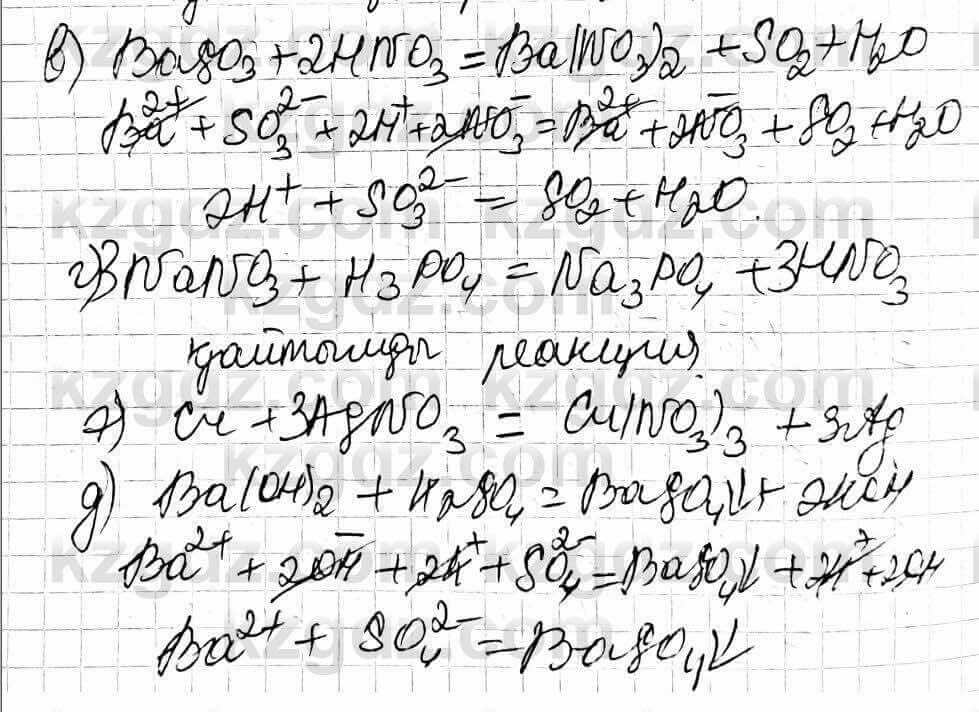 в) BaSO₃ + 2HNO₃ = Ba(NO₃)₂ + SO₂ + H₂O
Ba²⁺ + SO₃²⁻ + 2H⁺ + 2NO₃⁻ = Ba²⁺ + 2NO₃⁻ + SO₂ + H₂O
2H⁺ + SO₃²⁻ = SO₂ + H₂O.
г) 3NaNO₃ + H₃PO₄ = Na₃PO₄ + 3HNO₃
қайтымды реакция
Cu + 3AgNO₃ = Cu(NO₃)₃ + 3Ag
д) Ba(OH)₂ + H₂SO₄ = BaSO₄↓ +
Ba²⁺ + 2OH⁻ + 2H⁺ + SO₄²⁻ = BaSO₄↓ + 2H⁺ + 2OH
Ba²⁺ + SO₄²⁻ = BaSO₄↓
kzgdz.com